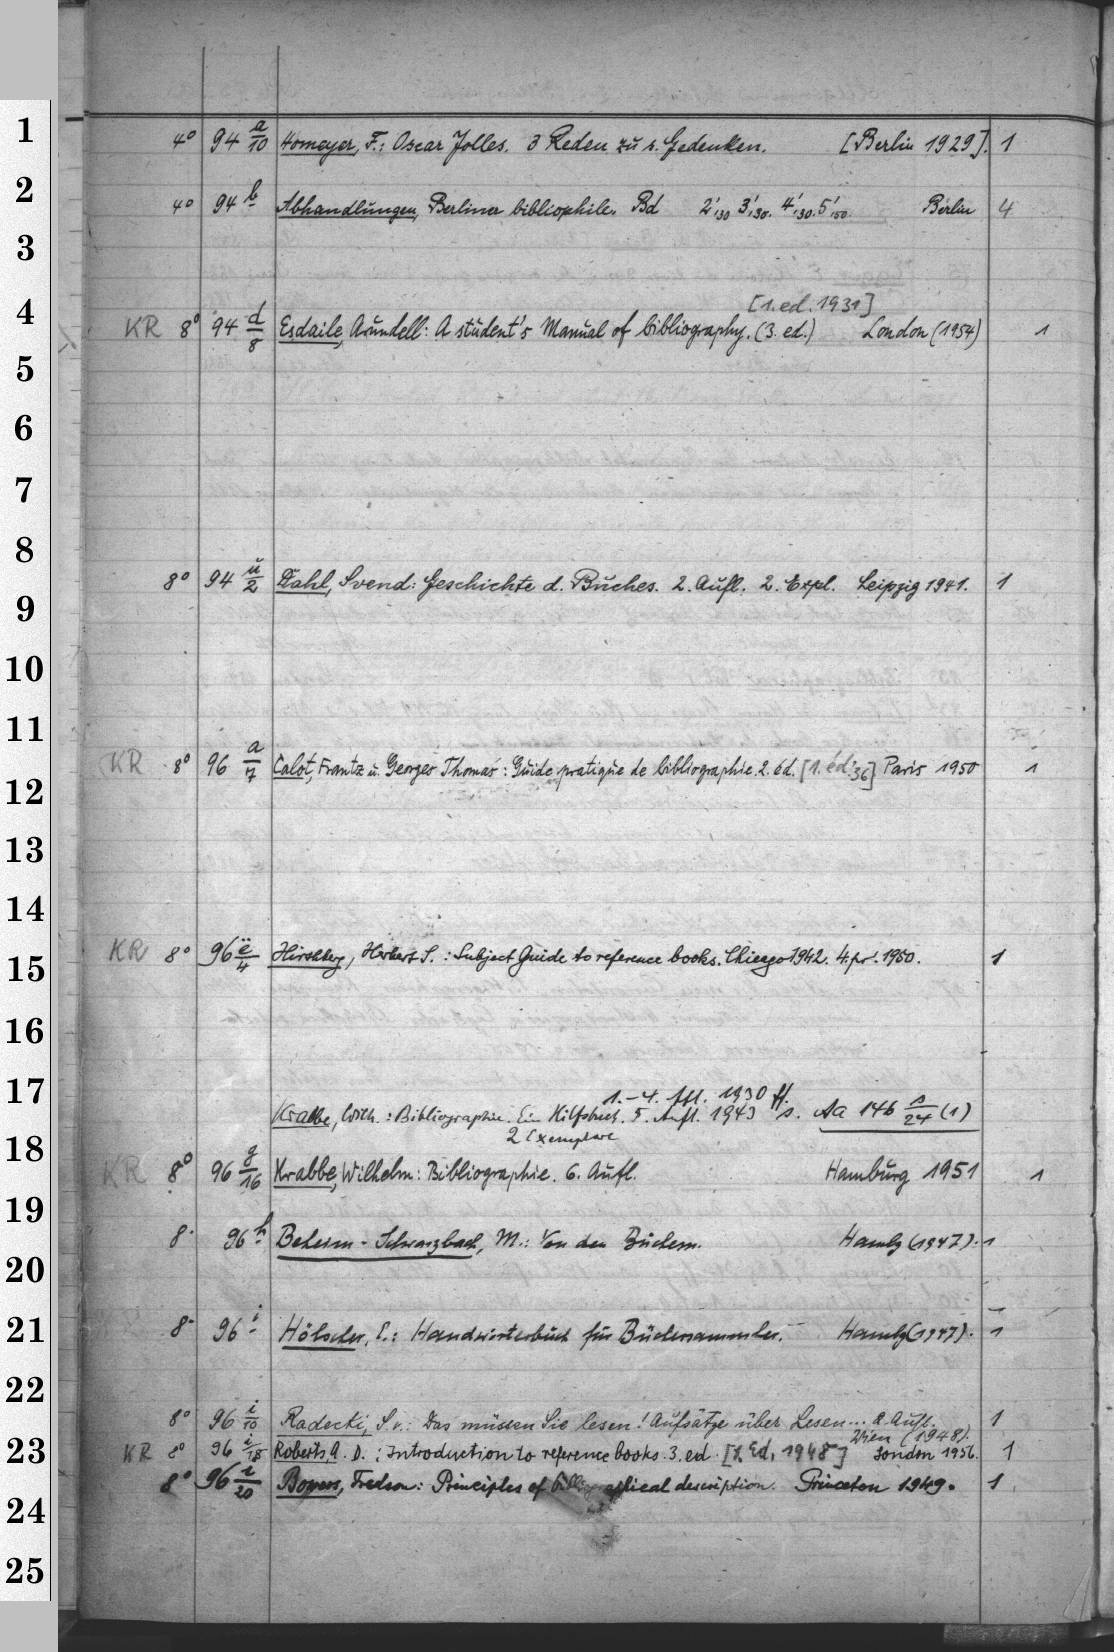 1
4° 94 a/10 Homeyer, F.: Oscar Jolles. 3 Reden zu s. Gedenken. [Berlin 1929]. 1
2
4° 94 b Abhandlungen, Berliner bibliophile. Bd 2',30 3',30. 4',30. 5',50 Berlin 4
3
[1. ed. 1931]
4
KR 8° 94 d/8 Esdaile, Arundell: A student's Manual of bibliography. (3. ed.) London (1954) 1
5
6
7
8
8° 94 u/2 Dahl, Svend: Geschichte d. Buches. 2. Aufl. 2. Expl. Leipzig 1941. 1
9
10
11
KR 8° 96 a/7 Calot, Frantz u. Georges Thomas: Guide pratique de bibliographie. 2. éd. [1. éd. '36] Paris 1950 1
12
13
14
KR 8° 96 ë/4 Hirshberg, Herbert S.: Subject Guide to reference books. Chicago 1942. 4. pr. 1950. 1
15
16
17
1.-4. Afl. 1930 ff.
Krabbe, Wilh.: Bibliographie. Ein Hilfsbuch. 5. Aufl. 1943 s. Aa 146 s/24 (1)
2 Exemplare
18
KR 8° 96 g/16 Krabbe, Wilhelm: Bibliographie. 6. Aufl. Hamburg 1951 1
19
8° 96 h Beheim-Schwarzbach, M.: Von den Büchern. Hambg (1947). 1
20
21
8° 96 i Hölscher, E.: Handwörterbuch für Büchersammler. Hambg (1947). 1
22
8° 96 i/10 Radecki, S. v.: Das müssen Sie lesen! Aufsätze über Lesen... 2. Aufl. 1
Wien (1948).
23
KR 8° 96 i/18 Roberts, A. D.: Introduction to reference books. 3. ed. [1. Ed. 1948] London 1956. 1
8° 96 i/20 Bowers, Fredson: Principles of bibliographical description. Princeton 1949. 1
24
25